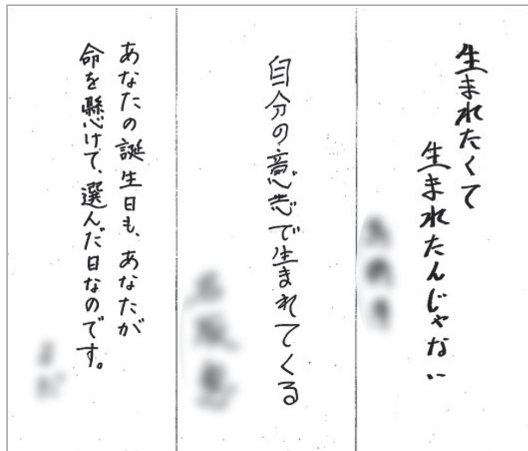 生まれたくて
生まれたんじゃない
自分の意志で生まれてくる
あなたの誕生日も、あなたが
命を懸けて、選んだ日なのです。